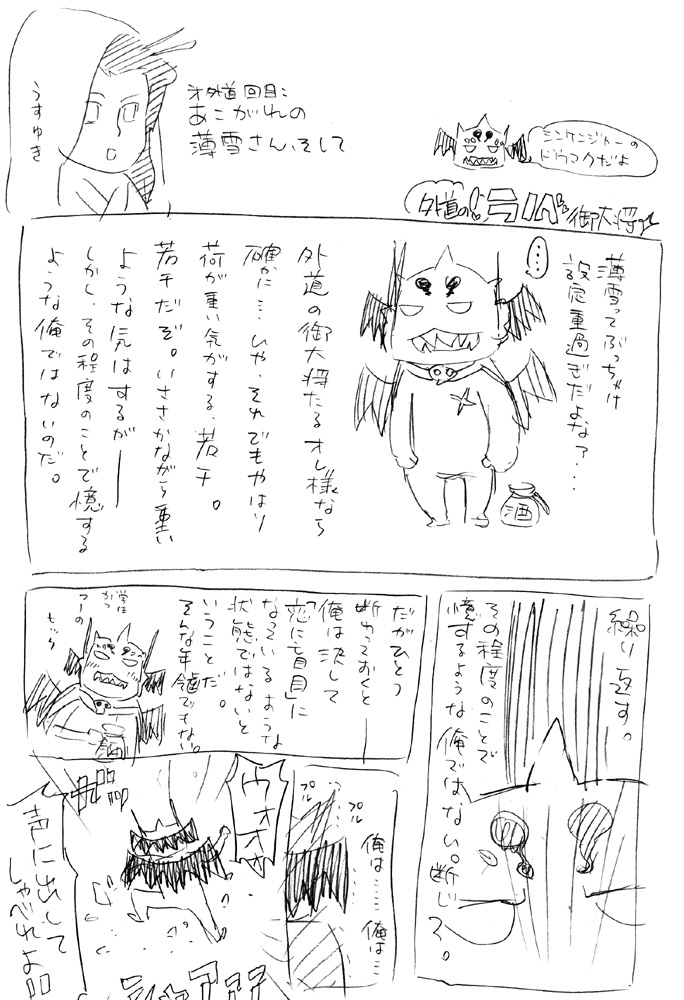 シンケンジャーの
ドウコクだよ
外道の!
御大将
才外道回目:
あこがれの
薄雪さん、そして
うすゆき
薄雪ってぶっちゃけ
設定重過ぎだよなァ…
…
酒
外道の御大将たるオレ様なら
確かに…いや、それでもやはり
荷が重い気がする、若干。
若干だぞ。いささかながら重い
ような気はするが――
しかし、その程度のことで憶する
ような俺ではないのだ。
繰り返す。
その程度のことで
憶するような俺ではない。断じて。
だがひとつ
断わっておくと――
俺は決して
「恋に盲目」に
なっているような
状態ではないと
いうことだ。
そんな年齢でもない。
つーの
酒
プル
プル
俺は……俺は…
ウオオオ
声に出して
しゃべれよ